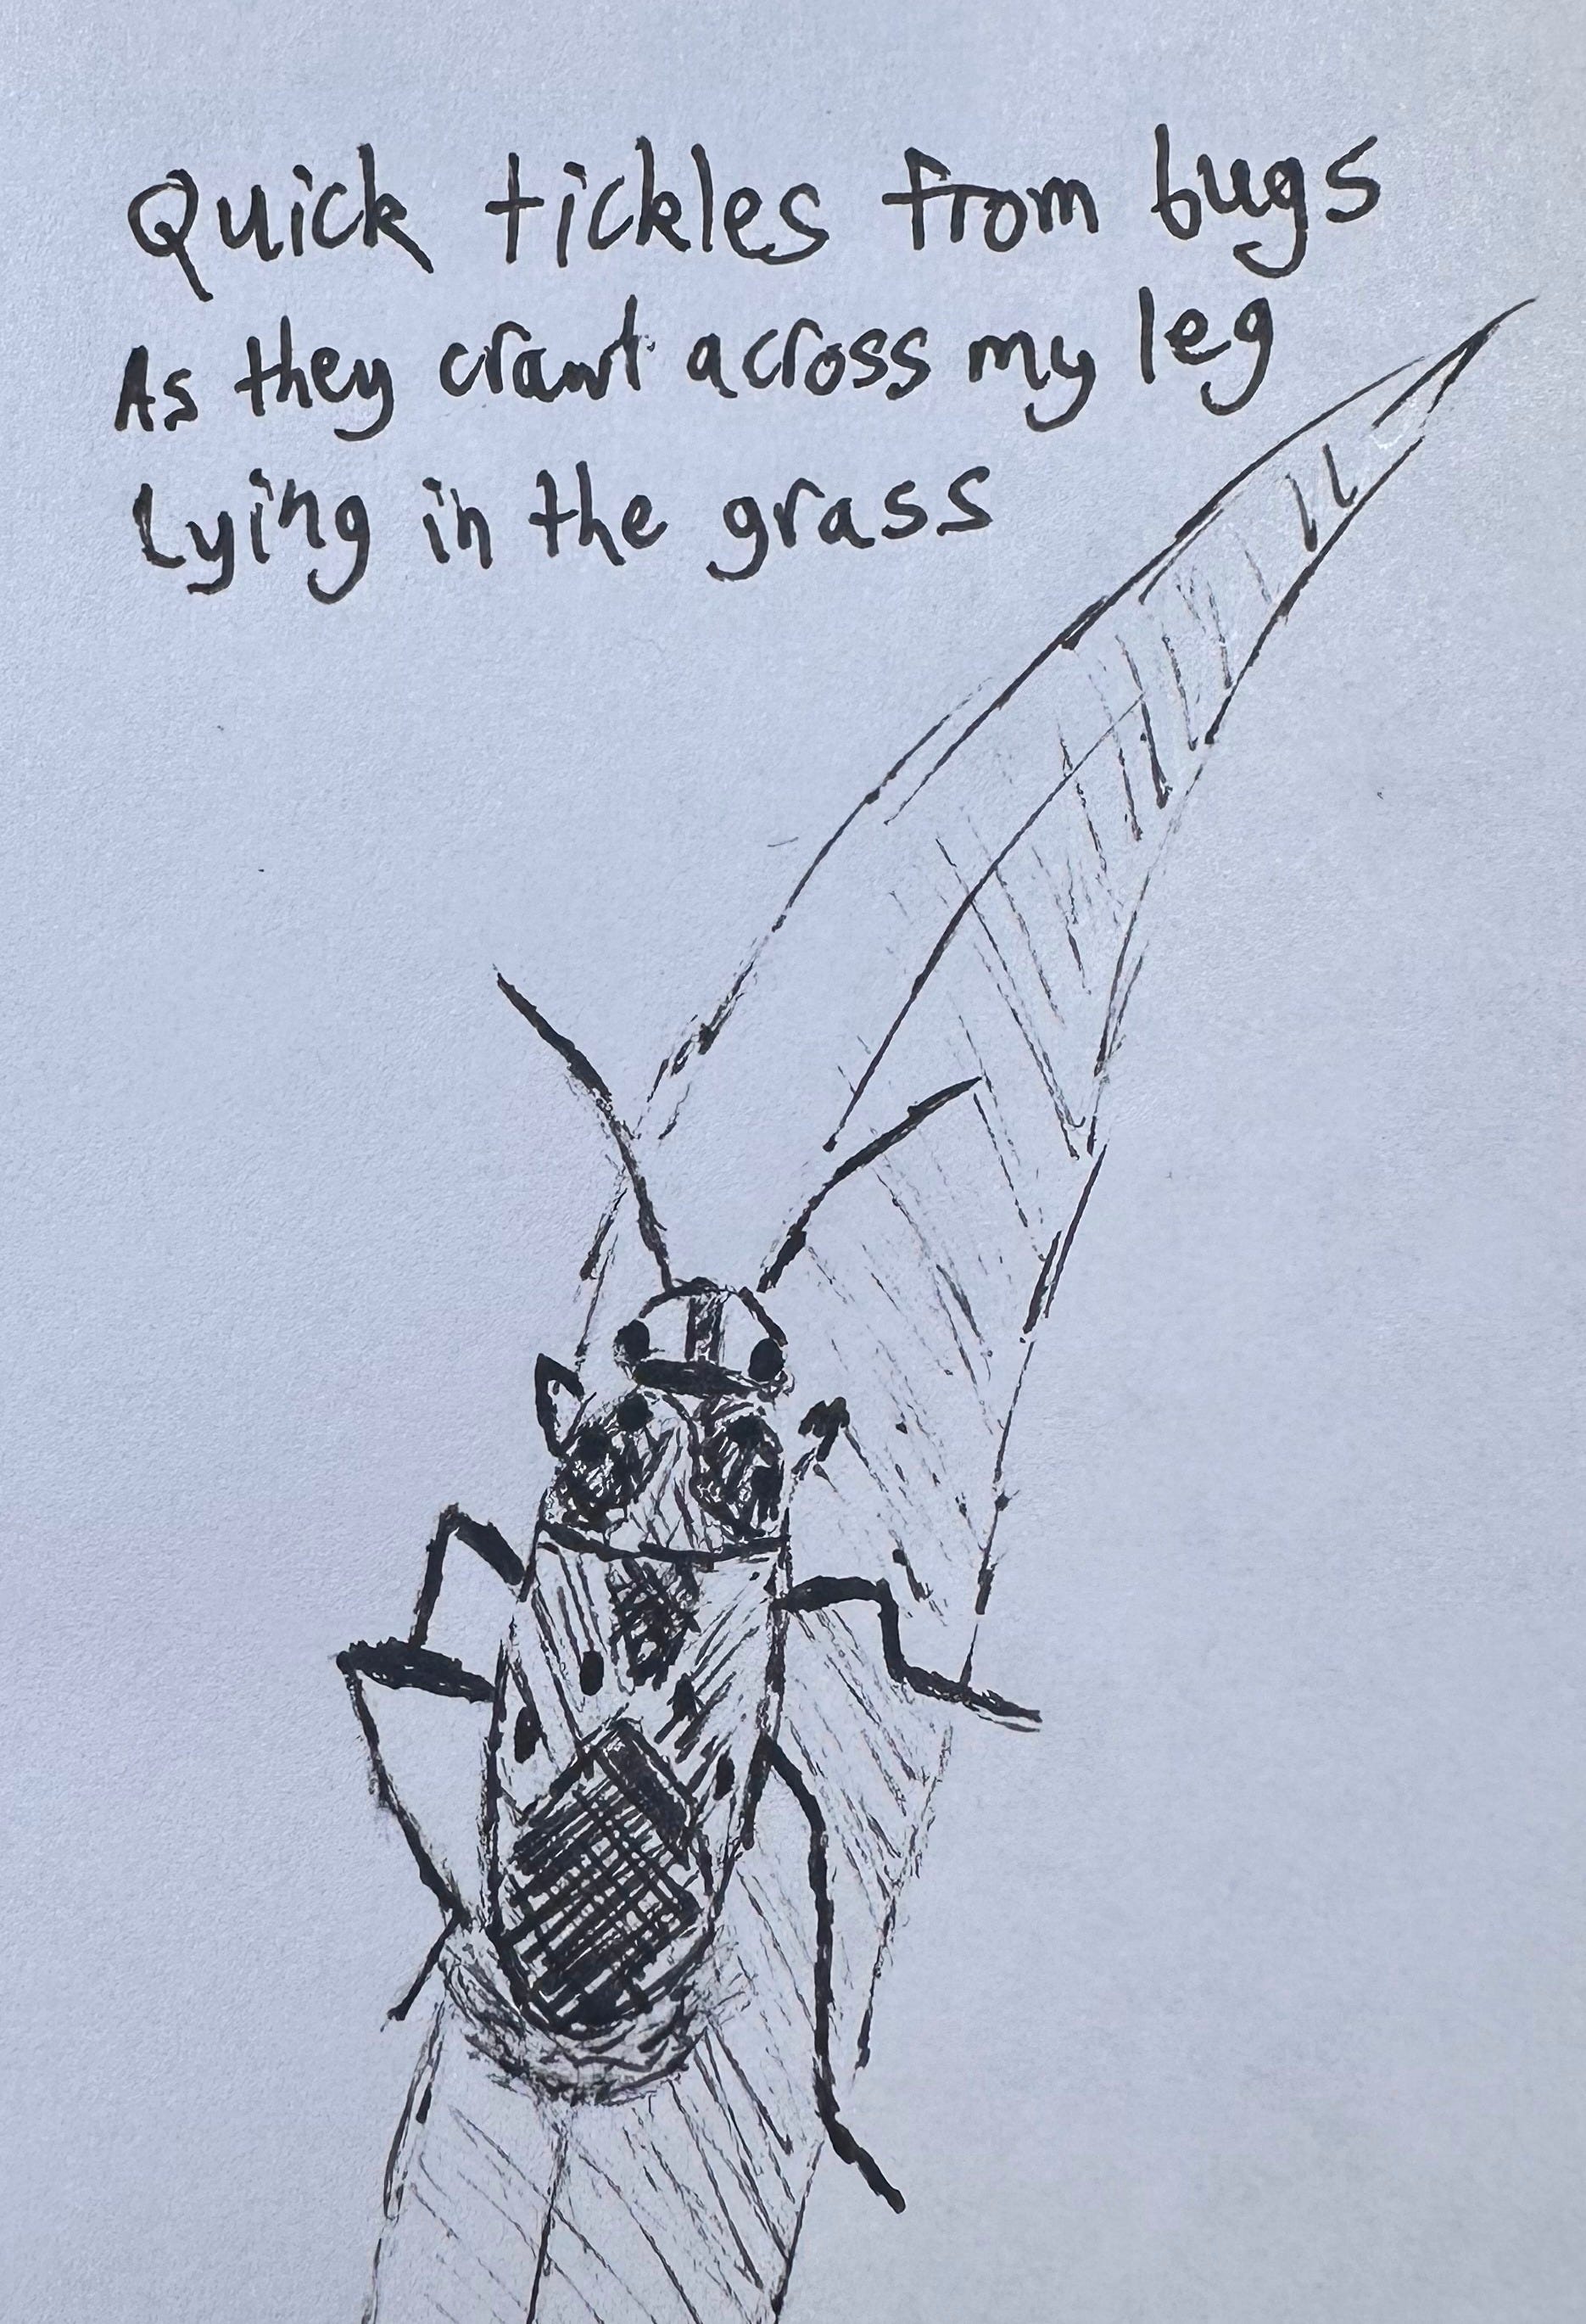 Quick tickles from bugs
As they crawl across my leg
Lying in the grass